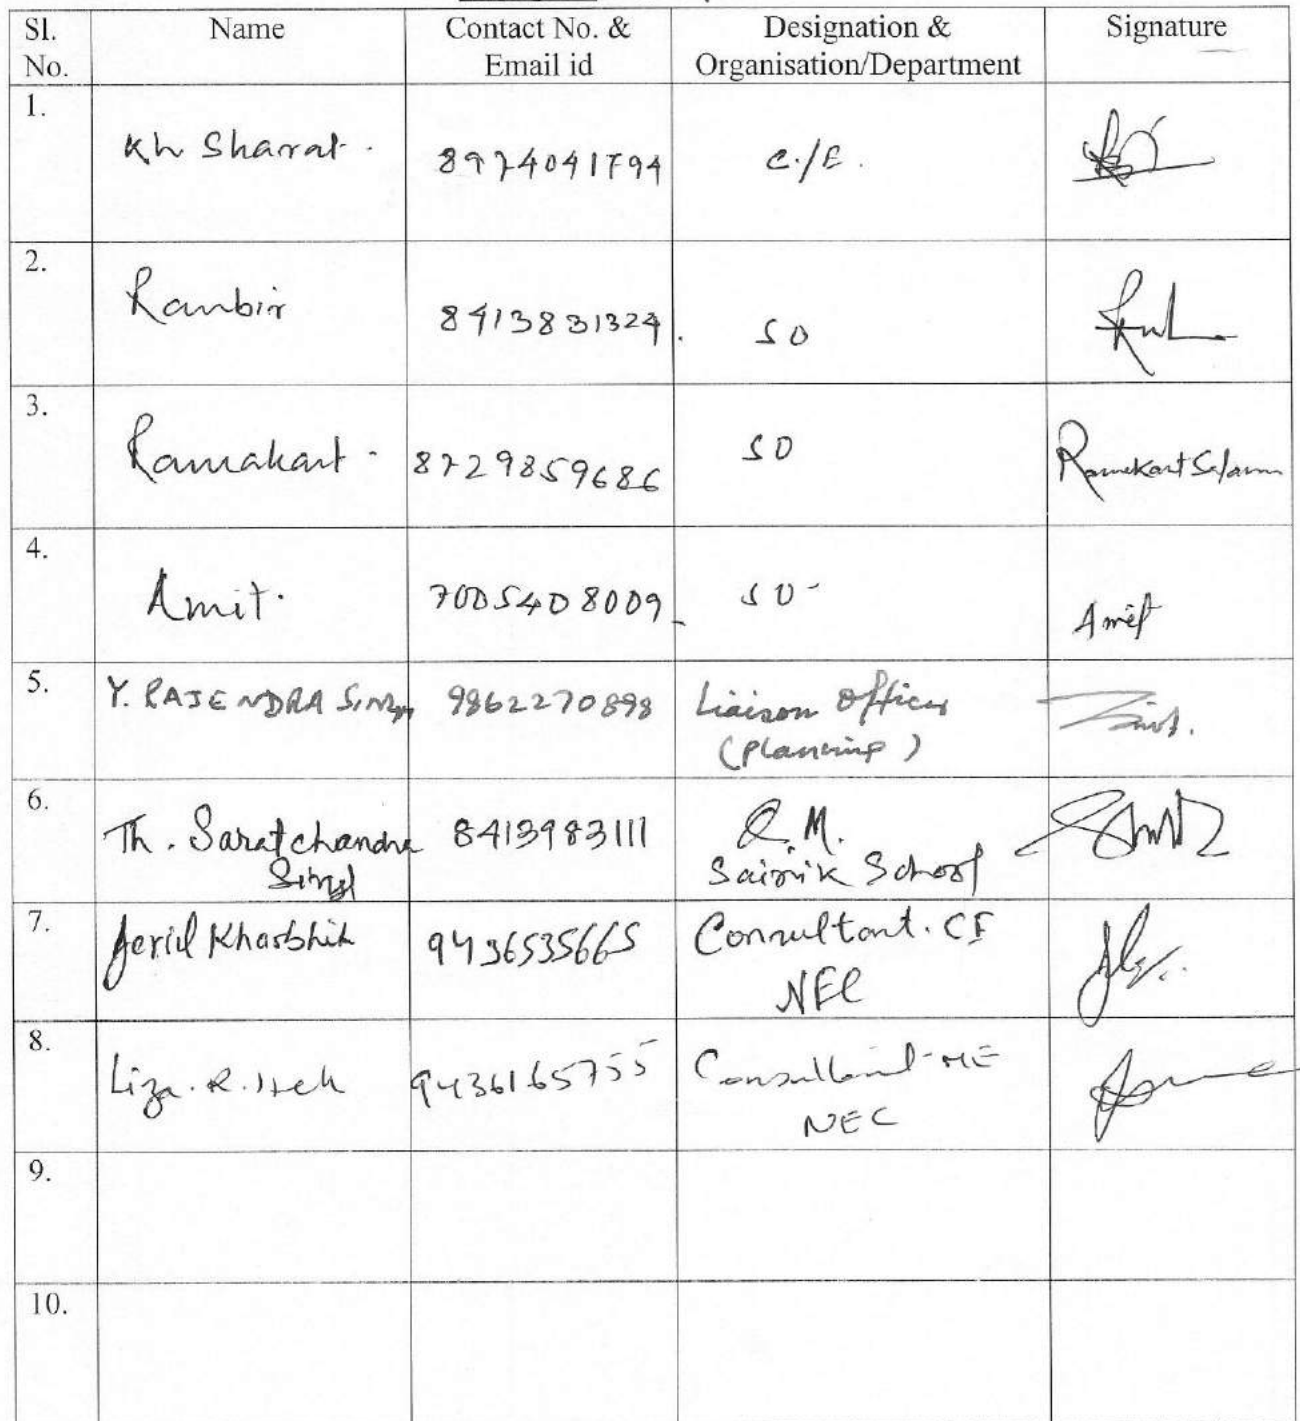 Sl. No. Name Contact No. & Email id Designation & Organisation/Department Signature
1. Kh Sharat. 8974041794 C./E.
2. Ranbir 8413831324. SO
3. Ramakant. 8729859686 SO
4. Amit. 7005408009 SO- Amit
5. Y. RAJENDRA SINGH 9862270898 Liaison Officer
(Planning)
6. Th. Saratchandra 8413983111 Q.M.
Singh Sainik School
7. Jerid Kharbhih 9436535665 Consultant. CE
NEC
8. Liza. R. 9436165755 Consultant-ME
NEC
9.
10.